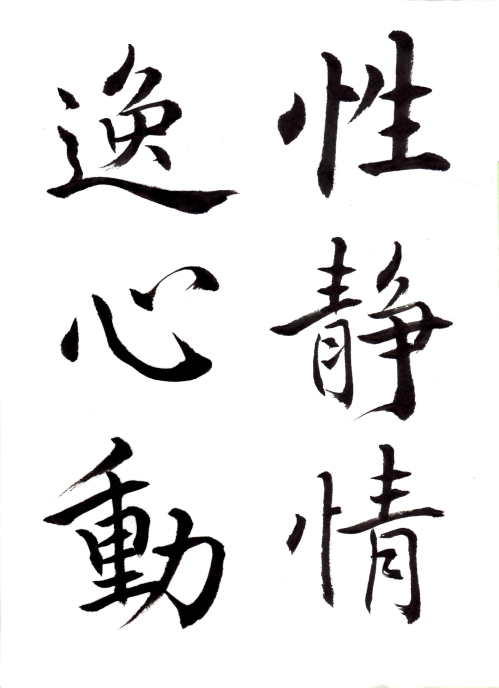 性静情
逸心動